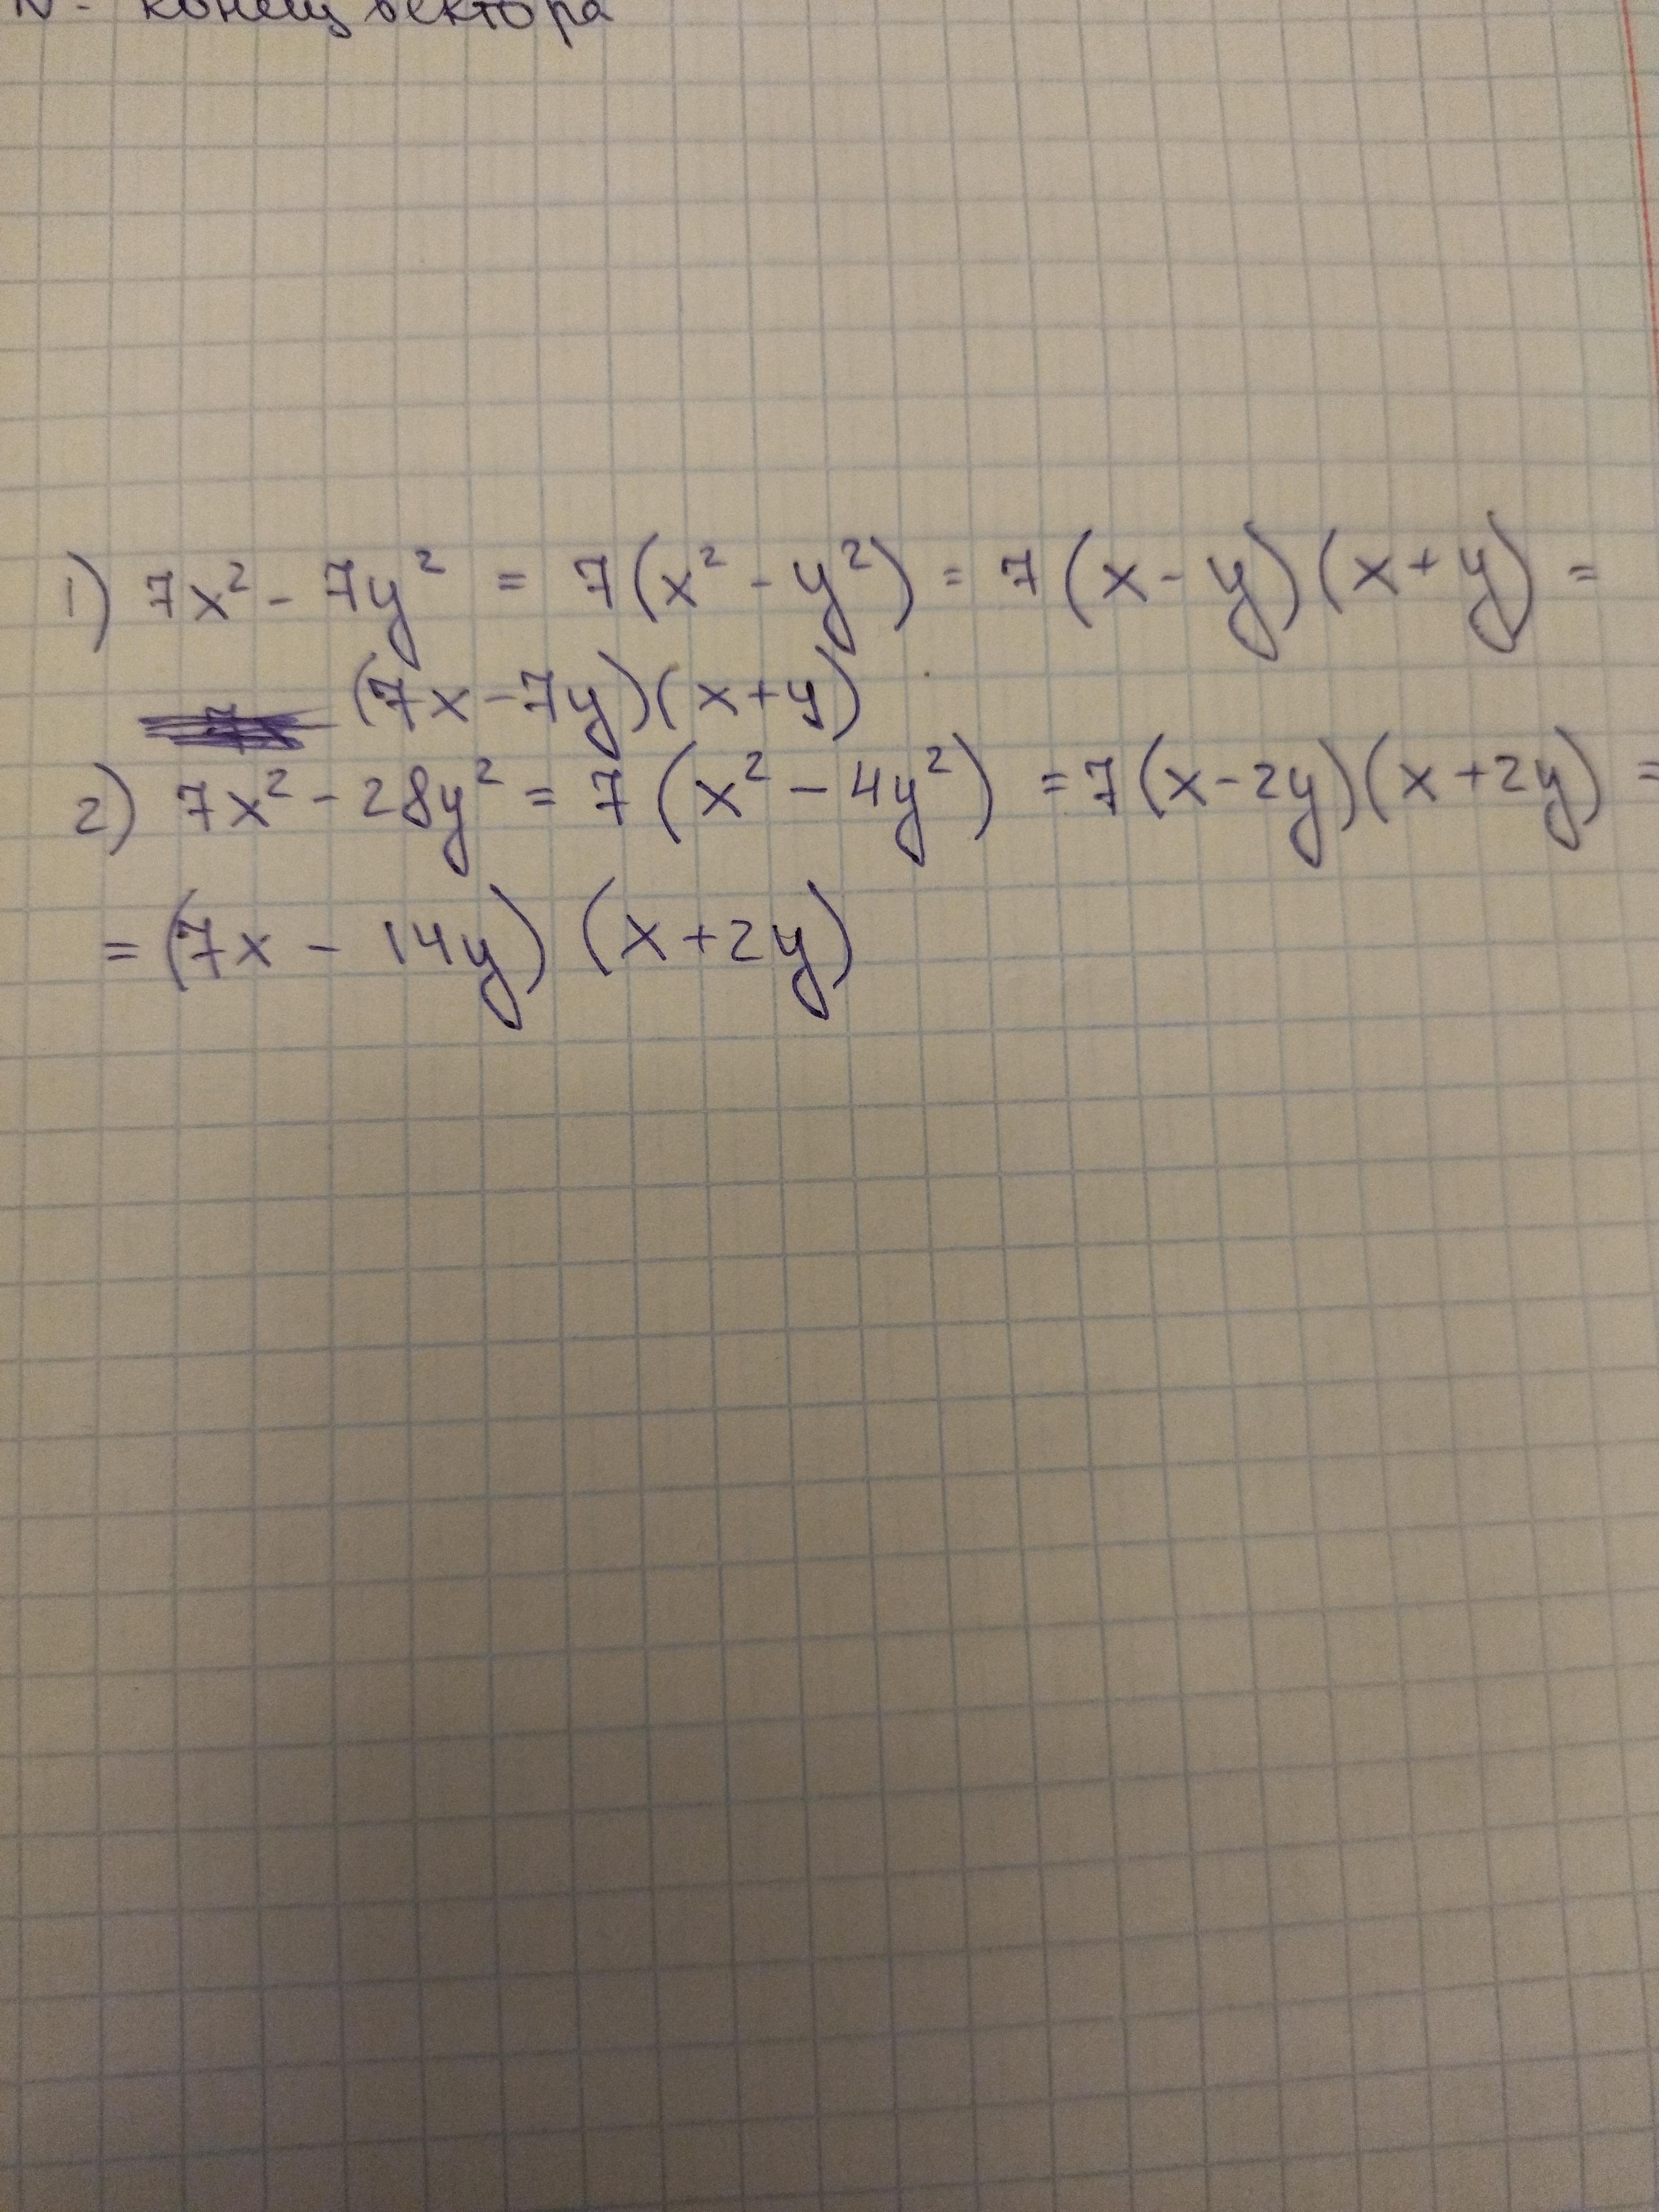 N - конец вектора
1) 7x² - 7y² = 7(x² - y²) = 7(x - y)(x + y) =
(7x - 7y)(x + y)
2) 7x² - 28y² = 7(x² - 4y²) = 7(x - 2y)(x + 2y) =
= (7x - 14y)(x + 2y)